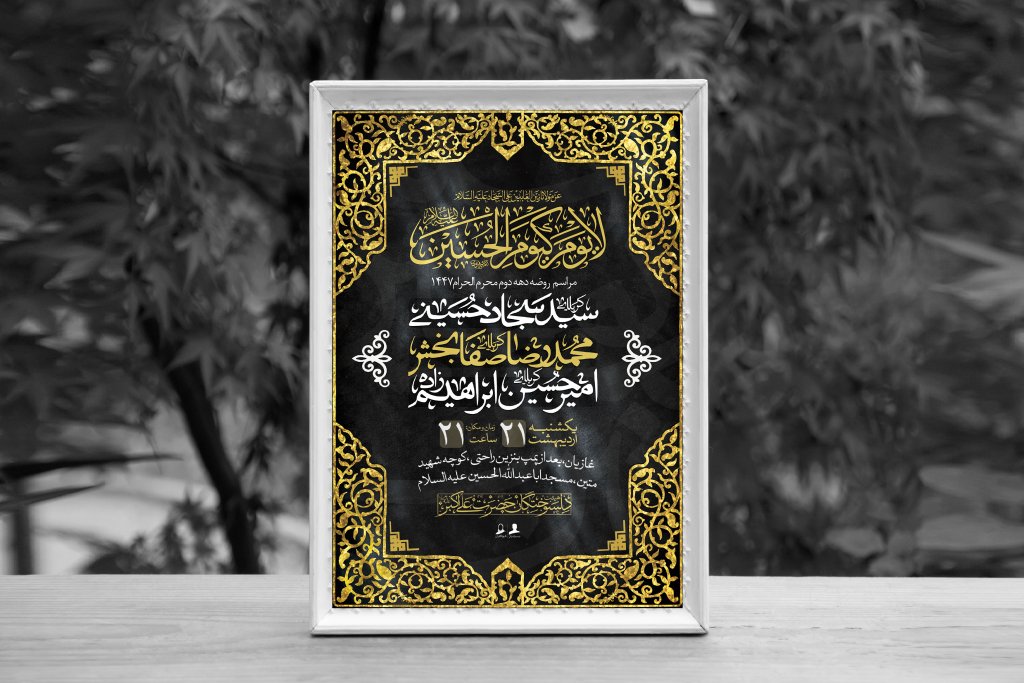 عن مولانا زین العابدین علی السجاد علیه السلام
لا یوم کیوم الحسین علیه السلام
مراسم روضه دهه دوم محرم الحرام ۱۴۴۷
کربلائی سید سجاد حسینی
کربلائی محمدرضا صفابخش
کربلائی امیرحسین ابراهیم زاده
یکشنبه ۲۱ اردیبهشت زمان و مکان: ساعت ۲۱
غازیان، بعد از پمپ بنزین راحتی، کوچه شهید
متین، مسجد اباعبدالله الحسین علیه السلام
دلسوختگان حضرت علی اکبر